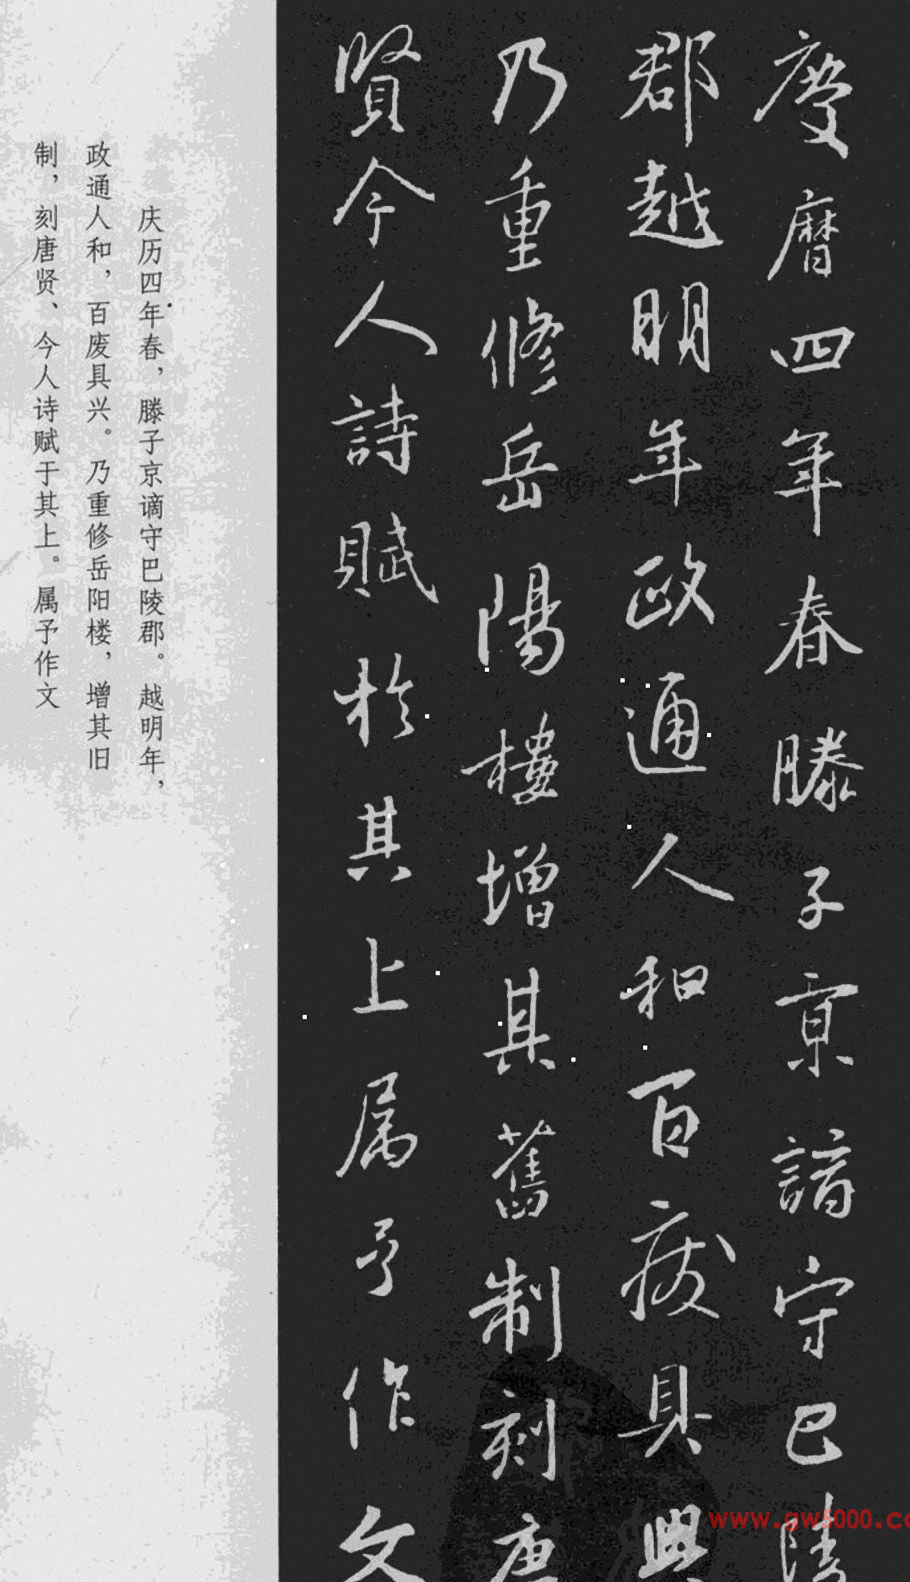 慶曆四年春滕子京謫守巴陵
郡越明年政通人和百廢具興
乃重修岳陽樓增其舊制刻唐
賢今人詩賦於其上属予作文
庆历四年春，滕子京谪守巴陵郡。越明年，
政通人和，百废具兴。乃重修岳阳楼，增其旧
制，刻唐贤、今人诗赋于其上。属予作文